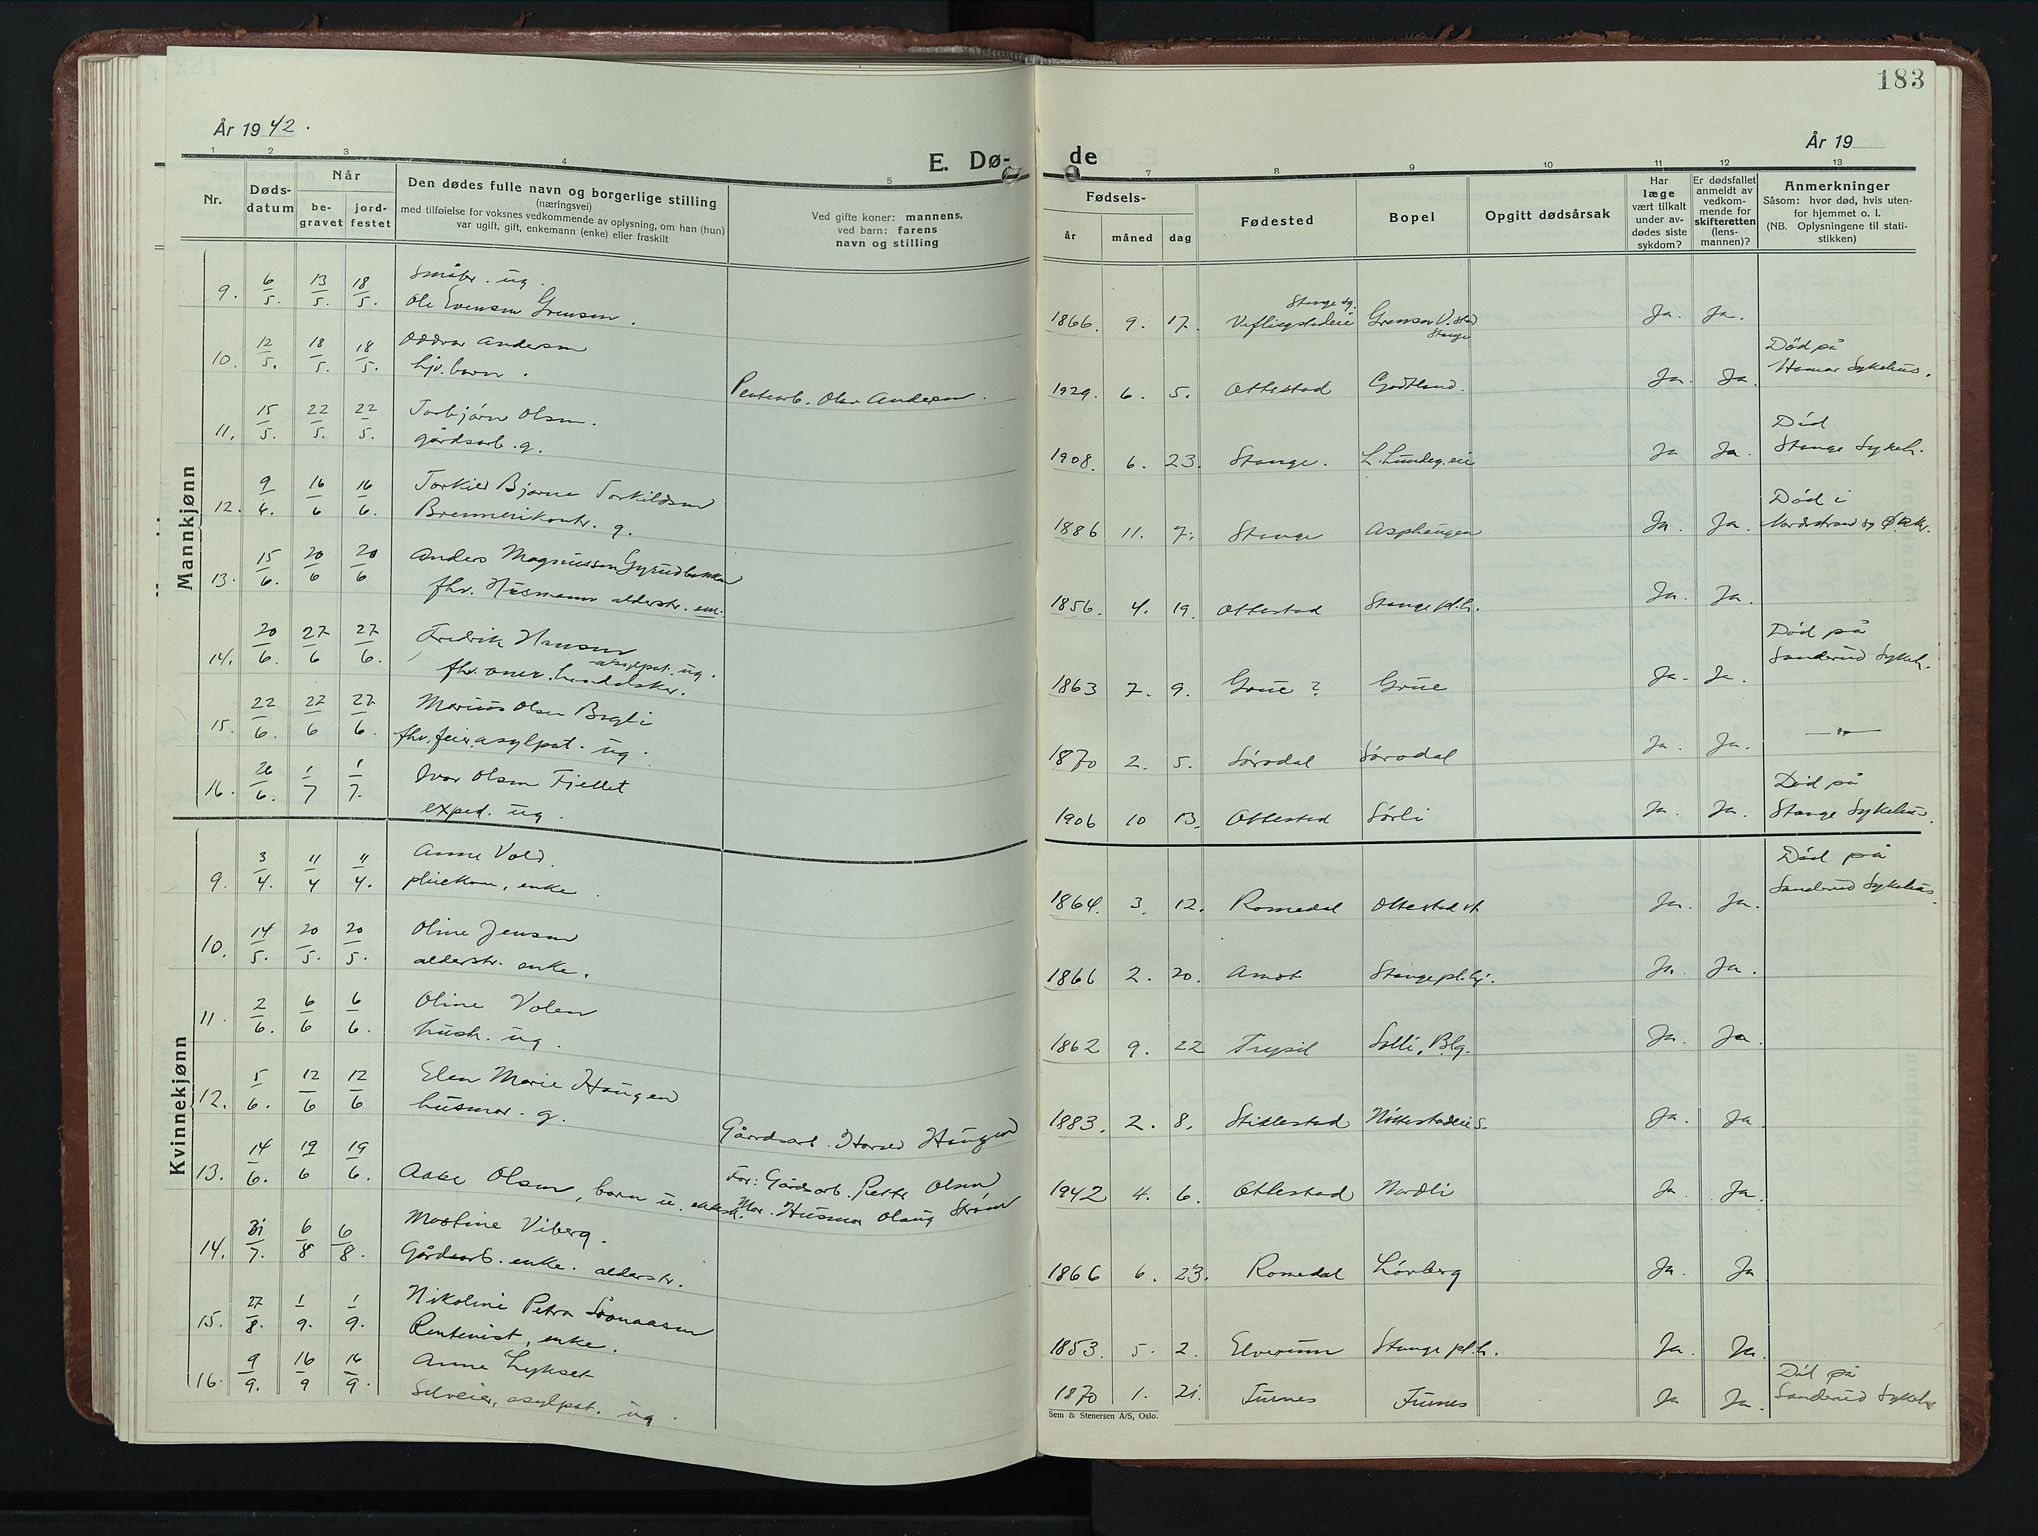 183
År 1942.
År 19
E. Dø-
de
1 2 3 4 5
7 8 9 10 11 12 13
Nr.
Døds-
datum
Når
be-
gravet
jord-
festet
Den dødes fulle navn og borgerlige stilling
(næringsvei)
med tilføielse for voksnes vedkommende av oplysning, om han (hun)
var ugift, gift, enkemann (enke) eller fraskilt
Ved gifte koner: mannens,
ved barn: farens
navn og stilling
Fødsels-
år
måned
dag
Fødested
Bopel
Opgitt dødsårsak
Har
læge
vært tilkalt
under av-
dødes siste
sykdom?
Er dødsfallet
anmeldt av
vedkom-
mende for
skifteretten
(lens-
mannen)?
Anmerkninger
Såsom: hvor død, hvis uten-
for hjemmet o. l.
(NB. Oplysningene til stati-
stikken)
Mannkjønn
9. 6/5. 13/5. 18/5. Småbr. ug.
Ole Evensen Grensen.
1866. 9. 17. Stange sg.
Veflingstadeie Grensen V. Stad
Stange Ja. Ja.
10. 12/5. 18/5. 18/5. Oddvar Andersen
hjv. barn.
Olav Andersen.
1929. 6. 5. Ottestad Godtland. Ja. Ja. Død på
Hamar Sykehus.
11. 15/5. 22/5. 22/5. Torbjørn Olsen.
gårdsarb. g.
1908. 6. 23. Stange. L. Lundeg. eie Ja Ja. Død
Stange Sykeh.
12. 9/6. 16/6 16/6. Torkild Bjarne Torkildsen
Brennerikontr. g.
1886 11. 7. Stange Asphaugen Ja. Ja. Død i
Nordstrand og Ø. Aker.
13. 15/6. 20/6 20/6 Anders Magnussen Gyrudbakken
fhv. Husmann alderstr. em.
1856. 4. 19. Ottestad Stange pl.h. Ja. Ja.
14. 20/6. 27/6 27/6. Fredrik Hansen
asylpat. ug.
1863 7. 9. Grue? Grue Ja. Ja. Død på
Sanderud Sykeh.
15. 22/6. 27/6 27/6. Marius Olsen Bogli
fhv. feier asylpat. ug.
1870 2. 5. Sørodal Sørodal Ja. Ja. —"—
16. 26/6. 1/7 1/7. Ivar Olsen Fjellet
exped. ug.
1906 10 13. Ottestad Sørli Ja. Ja. Død på
Stange Sykehus.
Kvinnekjønn
9. 3/4. 11/4 11/4. Anne Vold.
pleiekone, enke.
1864. 3. 12. Romedal Ottestad st Ja. Ja. Død på
Sanderud Sykehus.
10. 14/5. 20/5. 20/5. Oline Jensen
alderstr. enke.
1866 2. 20. Åmot Stange pl.hj. Ja. Ja.
11. 2/6. 6/6 6/6. Oline Volen
hush. ug.
1862 9. 22 Trysil Solli, Blg. Ja. Ja
12. 5/6. 12/6 12/6 Elen Marie Haugen
husmor. g.
Gårdsarb. Haugen
1883. 2. 8. Stillestad Nøttestadeie S. Ja. Ja.
13. 14/6. 19/6 19/6. Aase Olsen, barn u. ektesk.
Far: Gårdsarb. Petter Olsen
Mor. Husmor Olaug Strøm
1942 4. 6. Ottestad Nordli Ja. Ja.
14. 31/7. 6/8 6/8. Martine Viberg.
Gårdsarb. enke. alderstr.
1866 6. 23. Romedal Lørberg Ja. Ja
15. 27/8. 1/9. 1/9. Nikoline Petra Svenaasen
Rentenist, enke.
1853. 5. 2. Elverum Stange pl.h. Ja. Ja.
16. 9/9. 16/9 16/9. Anne Lykset
Selveier, asylpat. ug.
1870 1. 21. Furnes Furnes Ja Ja. Død på
Sanderud Sykeh.
Sem & Stenersen A/S, Oslo.